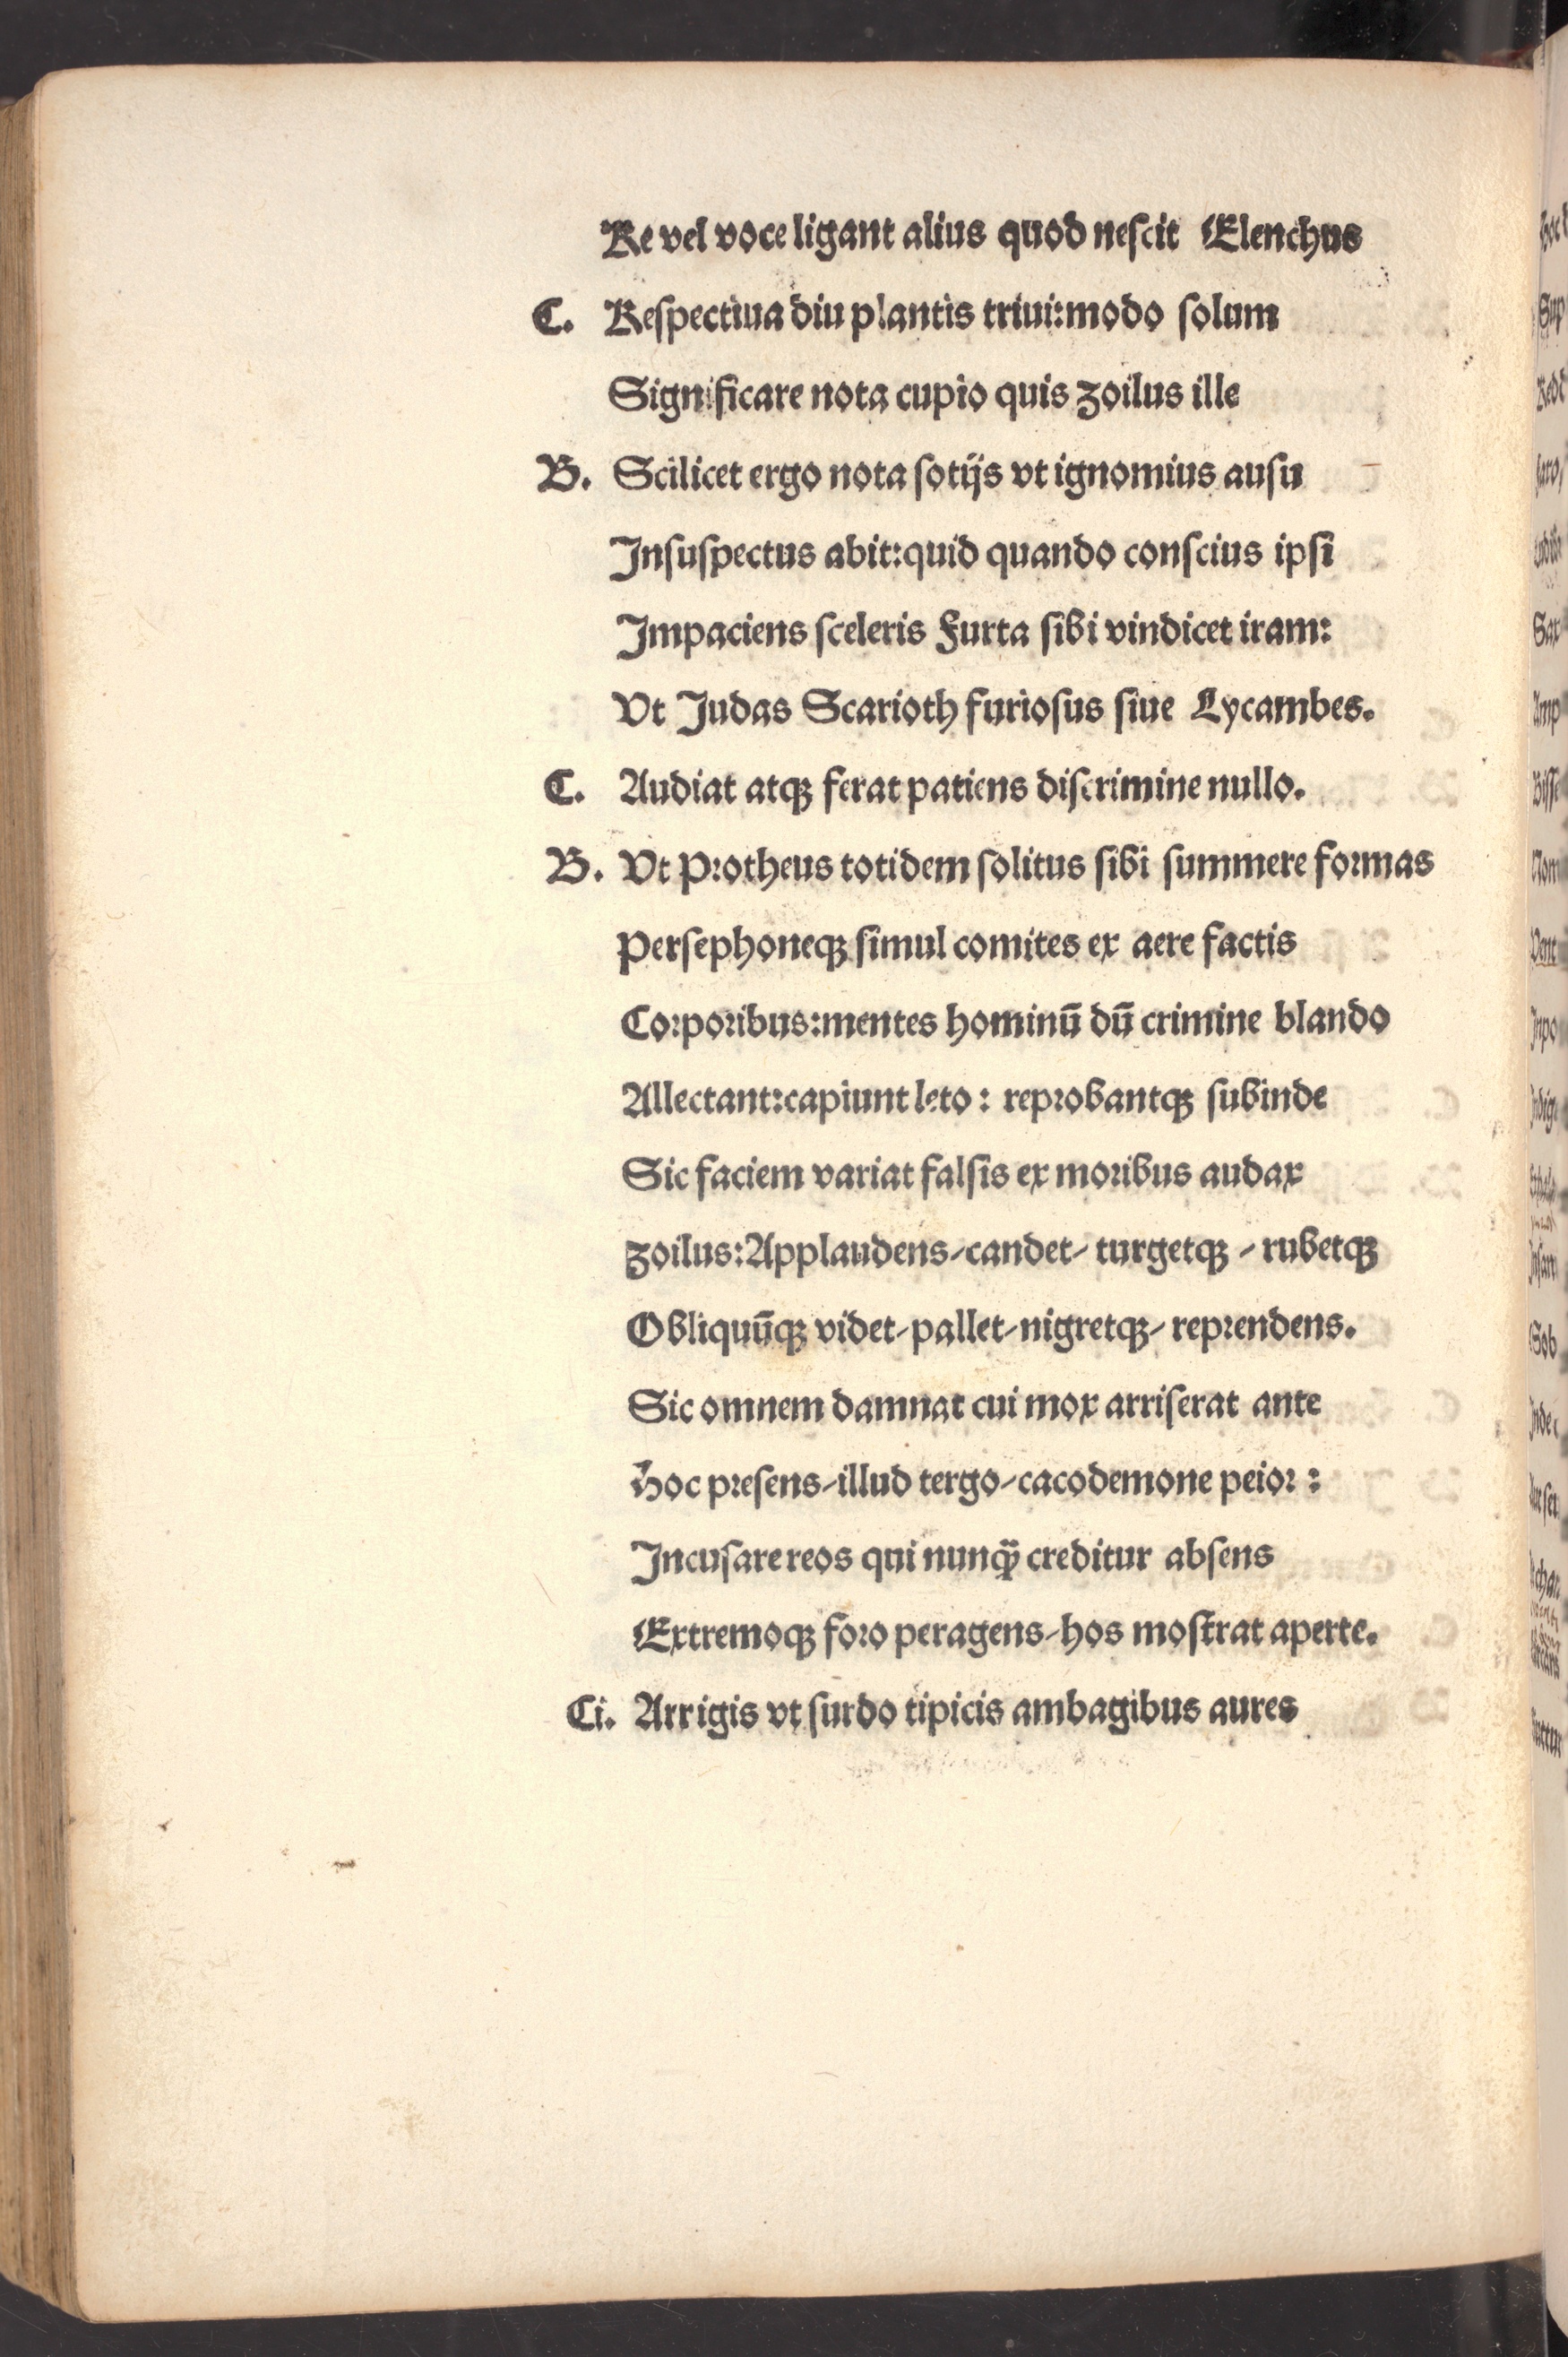 Re vel voce ligant alius quod neſcit Elenchus
C. Reſpectiua diu plantis triui:modo ſolum
Significare nota cupio quis zoilus ille
B. Scilicet ergo nota ſotijs vt ignomius auſu
Inſuſpectus abit:quid quando conſcius ipſi
Impaciens ſceleris Furta ſibi vindicet iram:
Vt Judas Scarioth furioſus ſiue Lycambes.
C. Audiat atqꝫ ferat patiens diſcrimine nullo.
B. Vt Protheus totidem ſolitus ſibi ſummere formas
Perſephoneqꝫ ſimul comites ex aere factis
Corporibus:mentes hominū dū crimine blando
Allectant:capiunt leto : reprobantqꝫ ſubinde
Sic faciem variat falſis ex moribus audax
zoilus:Applaudens/candet/ turgetqꝫ / rubetqꝫ
Obliquūqꝫ videt/pallet/nigretqꝫ/ reprendens.
Sic omnem damnat cui mox arriſerat ante
Hoc preſens/illud tergo/cacodemone peior :
Incuſare reos qui nunqᷓ creditur abſens
Extremoqꝫ foro peragens/hos moſtrat aperte.
Ci. Arrigis vt ſurdo tipicis ambagibus aures